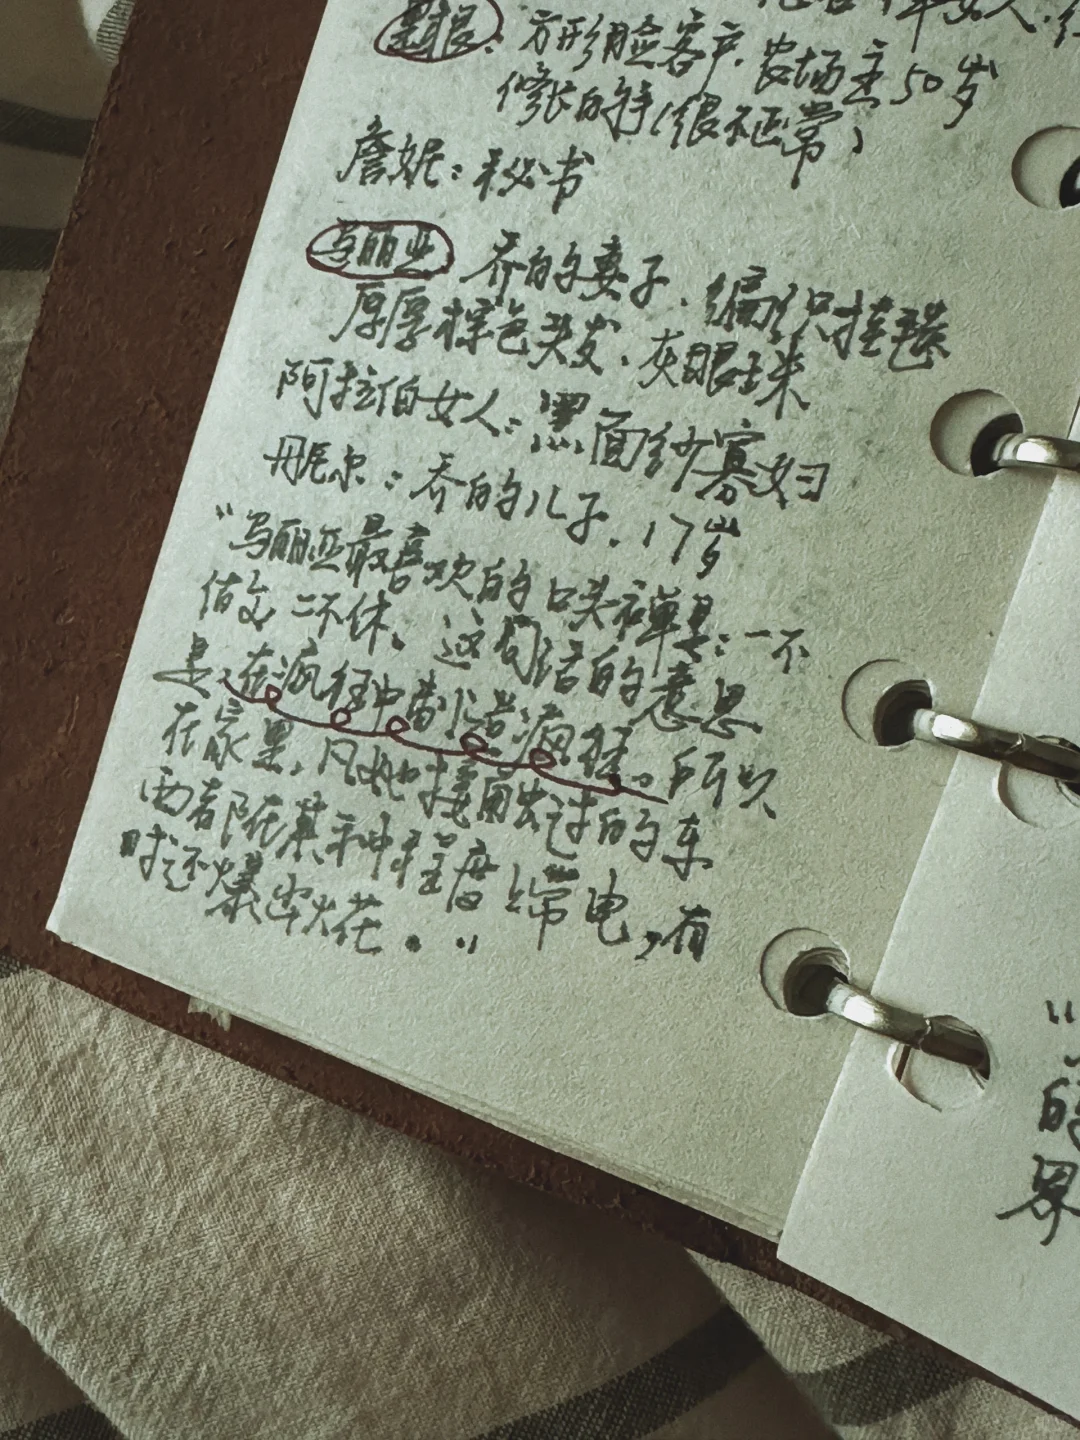 黑根：方形脸客户，农场主50岁
修长的手（很不正常）
詹妮：秘书
玛丽亚 乔的妻子，编织挂毯
厚厚棕色头发，灰眼珠
阿拉伯女人：黑面纱寡妇
丹尼尔：乔的儿子，17岁
“玛丽亚最喜欢的口头禅是：一不
做，二不休，这句话的意思
是，在疯狂中制造疯狂。所以
在家里，凡她接触过的东
西都在某种程度上带电，有
时还爆出火花。”
“
的
界